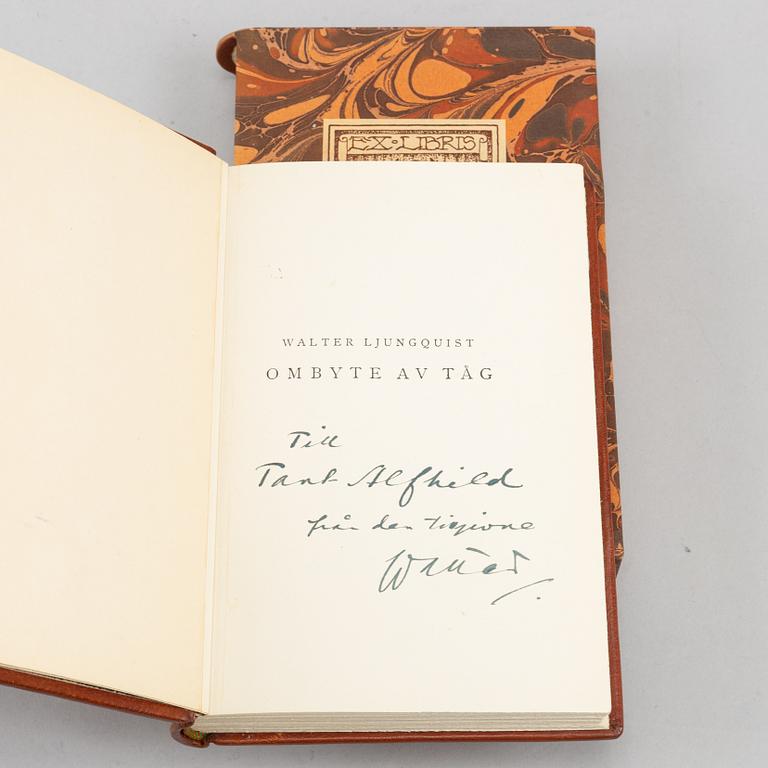 EX·LIBRIS
WALTER LJUNGQUIST
OMBYTE AV TÅG
Till
Tant Alfhild
från den
Walter